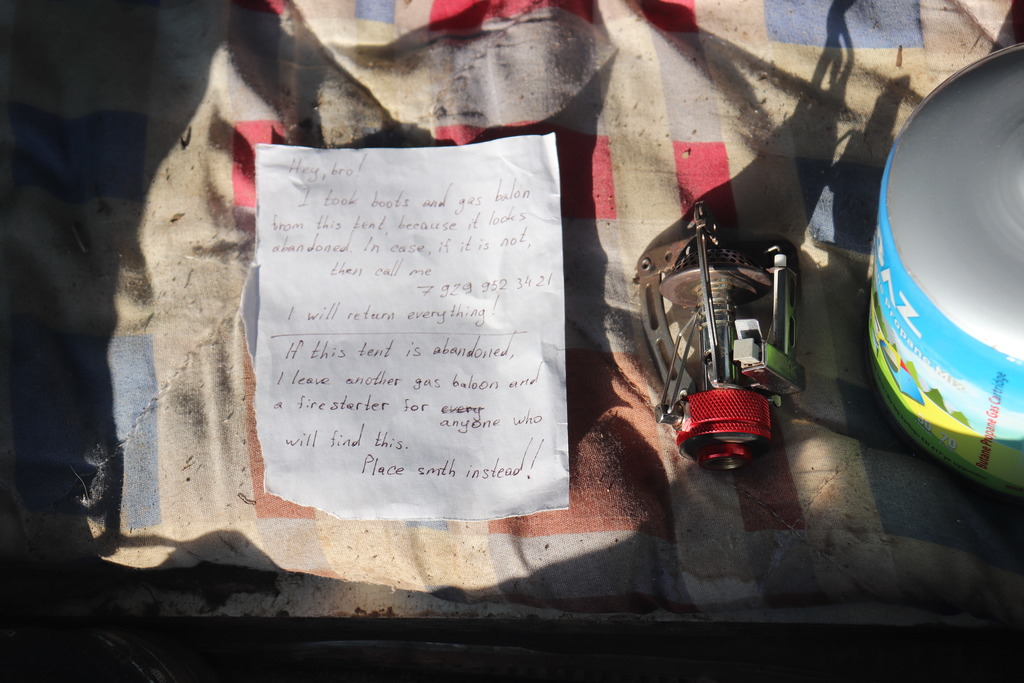 Hey, bro!
I took boots and gas balon
from this tent, because it looks
abandoned. In case, if it is not,
then call me
7 929 952 3421
I will return everything!
If this tent is abandoned,
I leave another gas baloon and
a firestarter for every
anyone who
will find this.
Place smth instead!!
Propane Mix
Butane Propane Gas Cartridge